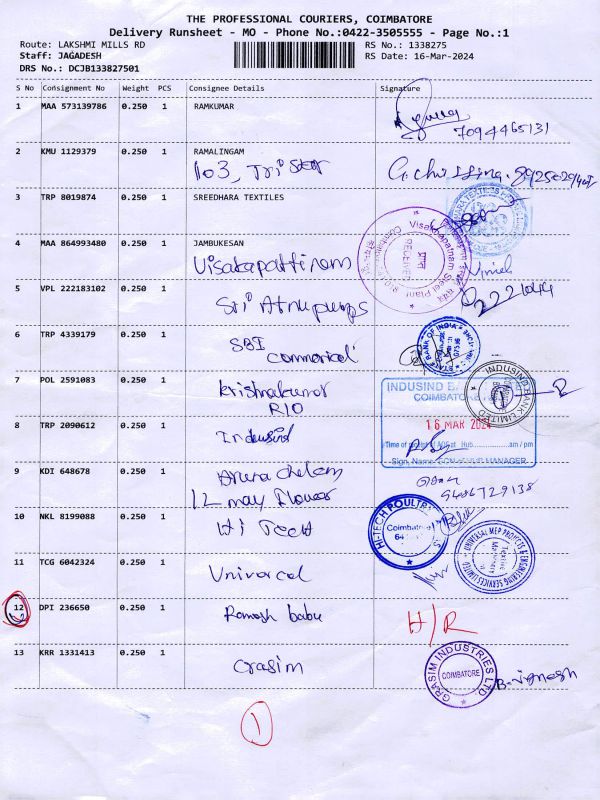 THE PROFESSIONAL COURIERS, COIMBATORE
Delivery Runsheet - MO - Phone No.:0422-3505555 - Page No.:1
Route: LAKSHMI MILLS RD
RS No.: 1338275
Staff: JAGADESH
RS Date: 16-Mar-2024
DRS No.: DCJB133827501
S No Consignment No Weight PCS Consignee Details Signature
1 MAA 573139786 0.250 1 RAMKUMAR
7094465131
2 KMU 1129379 0.250 1 RAMALINGAM
103, Tri Star
3 TRP 8019874 0.250 1 SREEDHARA TEXTILES
4 MAA 864993480 0.250 1 JAMBUKESAN
Visakapattinam
Visakhapatnam Steel Plant
RECEIVED
5 VPL 222183102 0.250 1 Sri Atnu pumps
6 TRP 4339179 0.250 1 SBI
commorical
STATE BANK OF INDIA
7 POL 2591083 0.250 1 krishnakumar
R10
INDUSIND BANK LIMITED
INDUSIND BA
COIMBATORE
16 MAR 2024
8 TRP 2090612 0.250 1 Indusind
Time of receipt of ADS at Hub am / pm
Sign, Name MANAGER
9 KDI 648678 0.250 1 Aruna chelam
12 may flower
9486729138
10 NKL 8199088 0.250 1 Hi Tech
HI-TECH POULTR
Coimbatore
11 TCG 6042324 0.250 1 Univarcel
UNIVERSAL MEP PROJECTS & ENGINEERING SERVICES LIMITED
Textile Machinery
12 DPI 236650 0.250 1 Ramesh babu H/R
13 KRR 1331413 0.250 1 Grasim
GRASIM INDUSTRIES LTD
COIMBATORE
B-vignesh
1